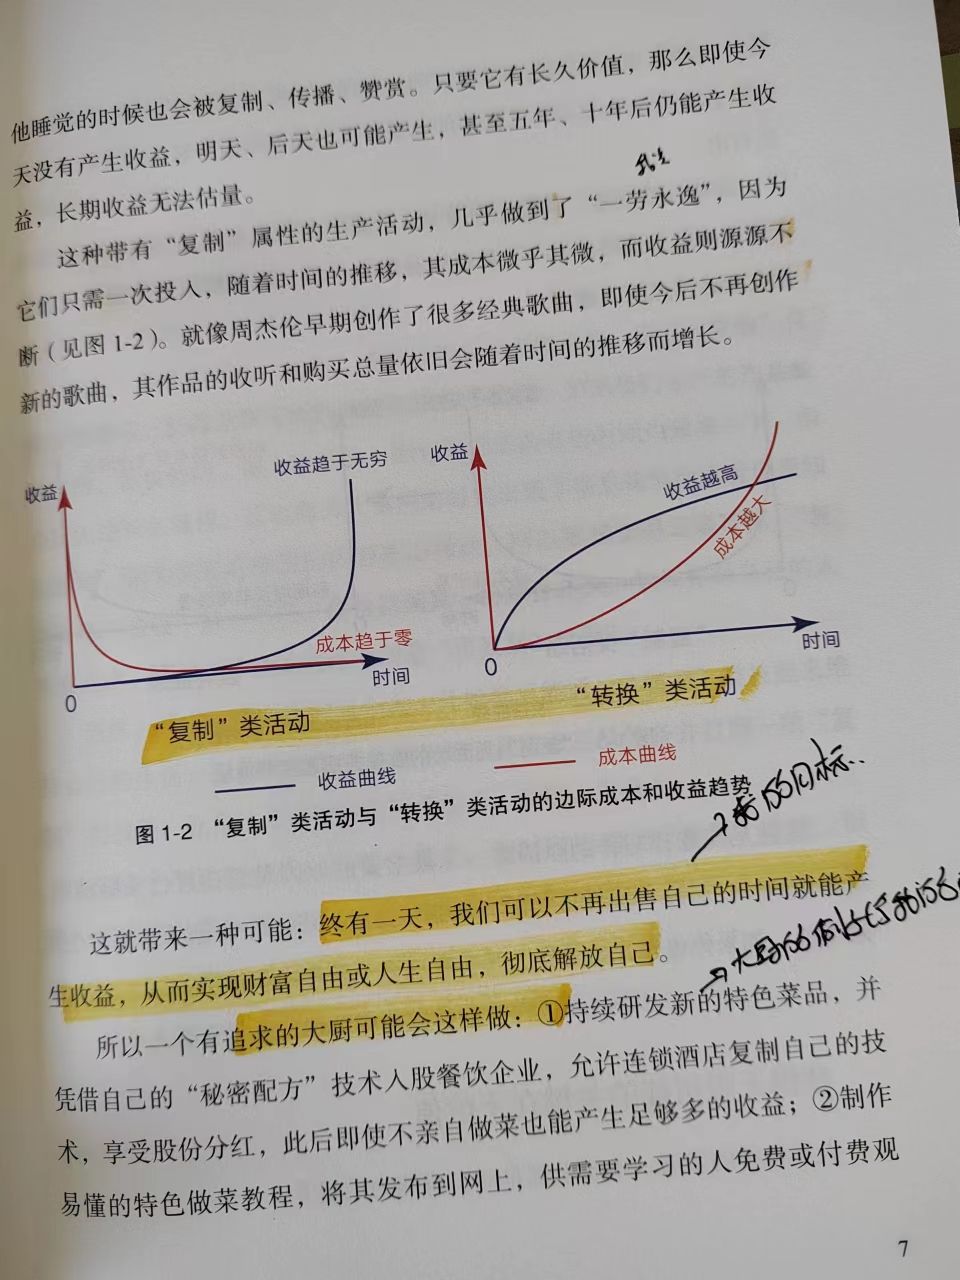 他睡觉的时候也会被复制、传播、赞赏。只要它有长久价值，那么即使今
天没有产生收益，明天、后天也可能产生，甚至五年、十年后仍能产生收
益，长期收益无法估量。
这种带有“复制”属性的生产活动，几乎做到了“一劳永逸”，因为
它们只需一次投入，随着时间的推移，其成本微乎其微，而收益则源源不
断（见图1-2）。就像周杰伦早期创作了很多经典歌曲，即使今后不再创作
新的歌曲，其作品的收听和购买总量依旧会随着时间的推移而增长。
收益
收益趋于无穷
成本趋于零
时间
0
“复制”类活动
收益
收益越高
成本越大
时间
0
“转换”类活动
收益曲线
成本曲线
图1-2 “复制”类活动与“转换”类活动的边际成本和收益趋势
目标..
这就带来一种可能：终有一天，我们可以不再出售自己的时间就能产
生收益，从而实现财富自由或人生自由，彻底解放自己。
大厨
所以一个有追求的大厨可能会这样做：①持续研发新的特色菜品，并
凭借自己的“秘密配方”技术入股餐饮企业，允许连锁酒店复制自己的技
术，享受股份分红，此后即使不亲自做菜也能产生足够多的收益；②制作
易懂的特色做菜教程，将其发布到网上，供需要学习的人免费或付费观
7